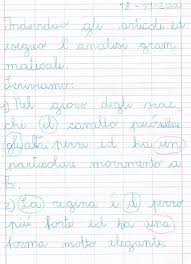 Individuo gli articoli ed
eseguo l'analisi gram
maticale.
Scriviamo:
1) Nel gioco degli scac
chi il cavallo può
gli altri pezzi ed ha un
particolare movimento a
L.
2) La regina è il pezzo
più forte ed ha una
forma molto elegante.